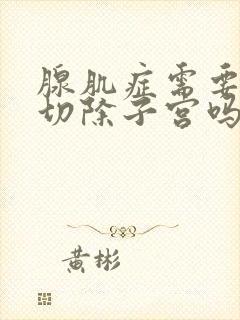 腺肌症需要
切除子宫吗
黄彬